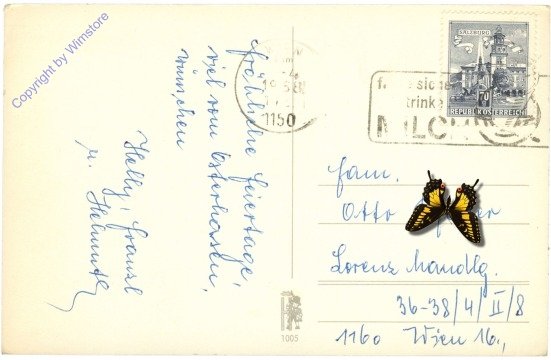 Copyright by Wimstore
fröhliche Feiertage,
viel vom Osterhasen,
wünschen
Helly, Franzl
u. Helmuth
1150
SALZBURG
70
REPUBLIK ÖSTERREICH
trinke
MILCH
Fam.
Otto
Lorenz Mandlg.
36-38/4/II/8
1160 Wien 16.,
1005